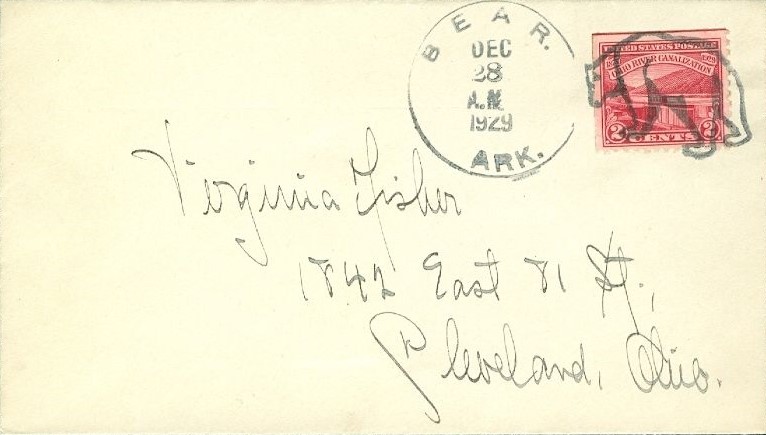 BEAR.
DEC
28
A.M.
1929
ARK.
UNITED STATES POSTAGE
OHIO RIVER CANALIZATION
2 CENTS 2
Virginia Fisher
1842 East 81 St.,
Cleveland, Ohio.